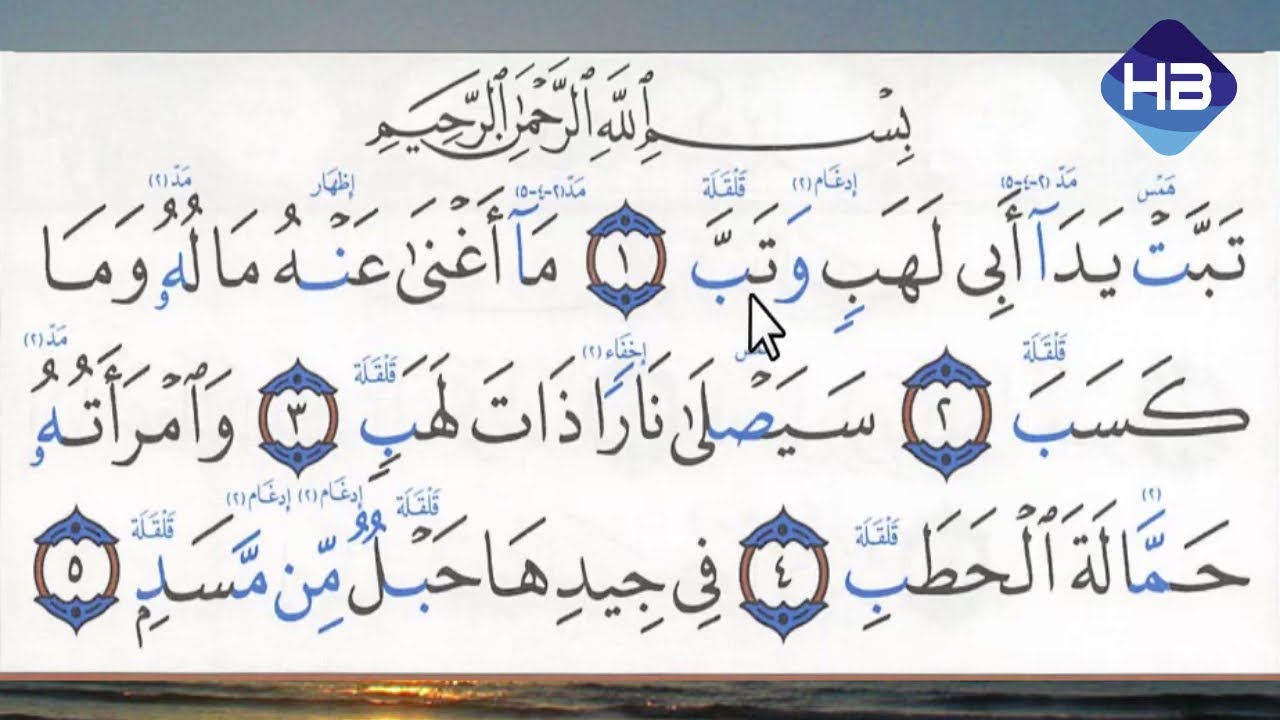 HB
بِسْمِ ٱللَّهِ ٱلرَّحْمَٰنِ ٱلرَّحِيمِ
هَمْس مَدّ (٢-٤-٥) إدغَام (٢) قَلْقَلَة مَدّ (٢-٤-٥) إظهَار مَدّ (٢)
تَبَّتْ يَدَآ أَبِي لَهَبٍ وَتَبَّ ١ مَآ أَغْنَىٰ عَنْهُ مَالُهُۥ وَمَا
قَلْقَلَة إخْفَاء (٢) قَلْقَلَة مَدّ (٢)
كَسَبَ ٢ سَيَصْلَىٰ نَارًا ذَاتَ لَهَبٍ ٣ وَٱمْرَأَتُهُۥ
(٢) قَلْقَلَة قَلْقَلَة إدغَام (٢) إدغَام (٢) قَلْقَلَة
حَمَّالَةَ ٱلْحَطَبِ ٤ فِي جِيدِهَا حَبْلٌ مِّن مَّسَدٍۭ ٥